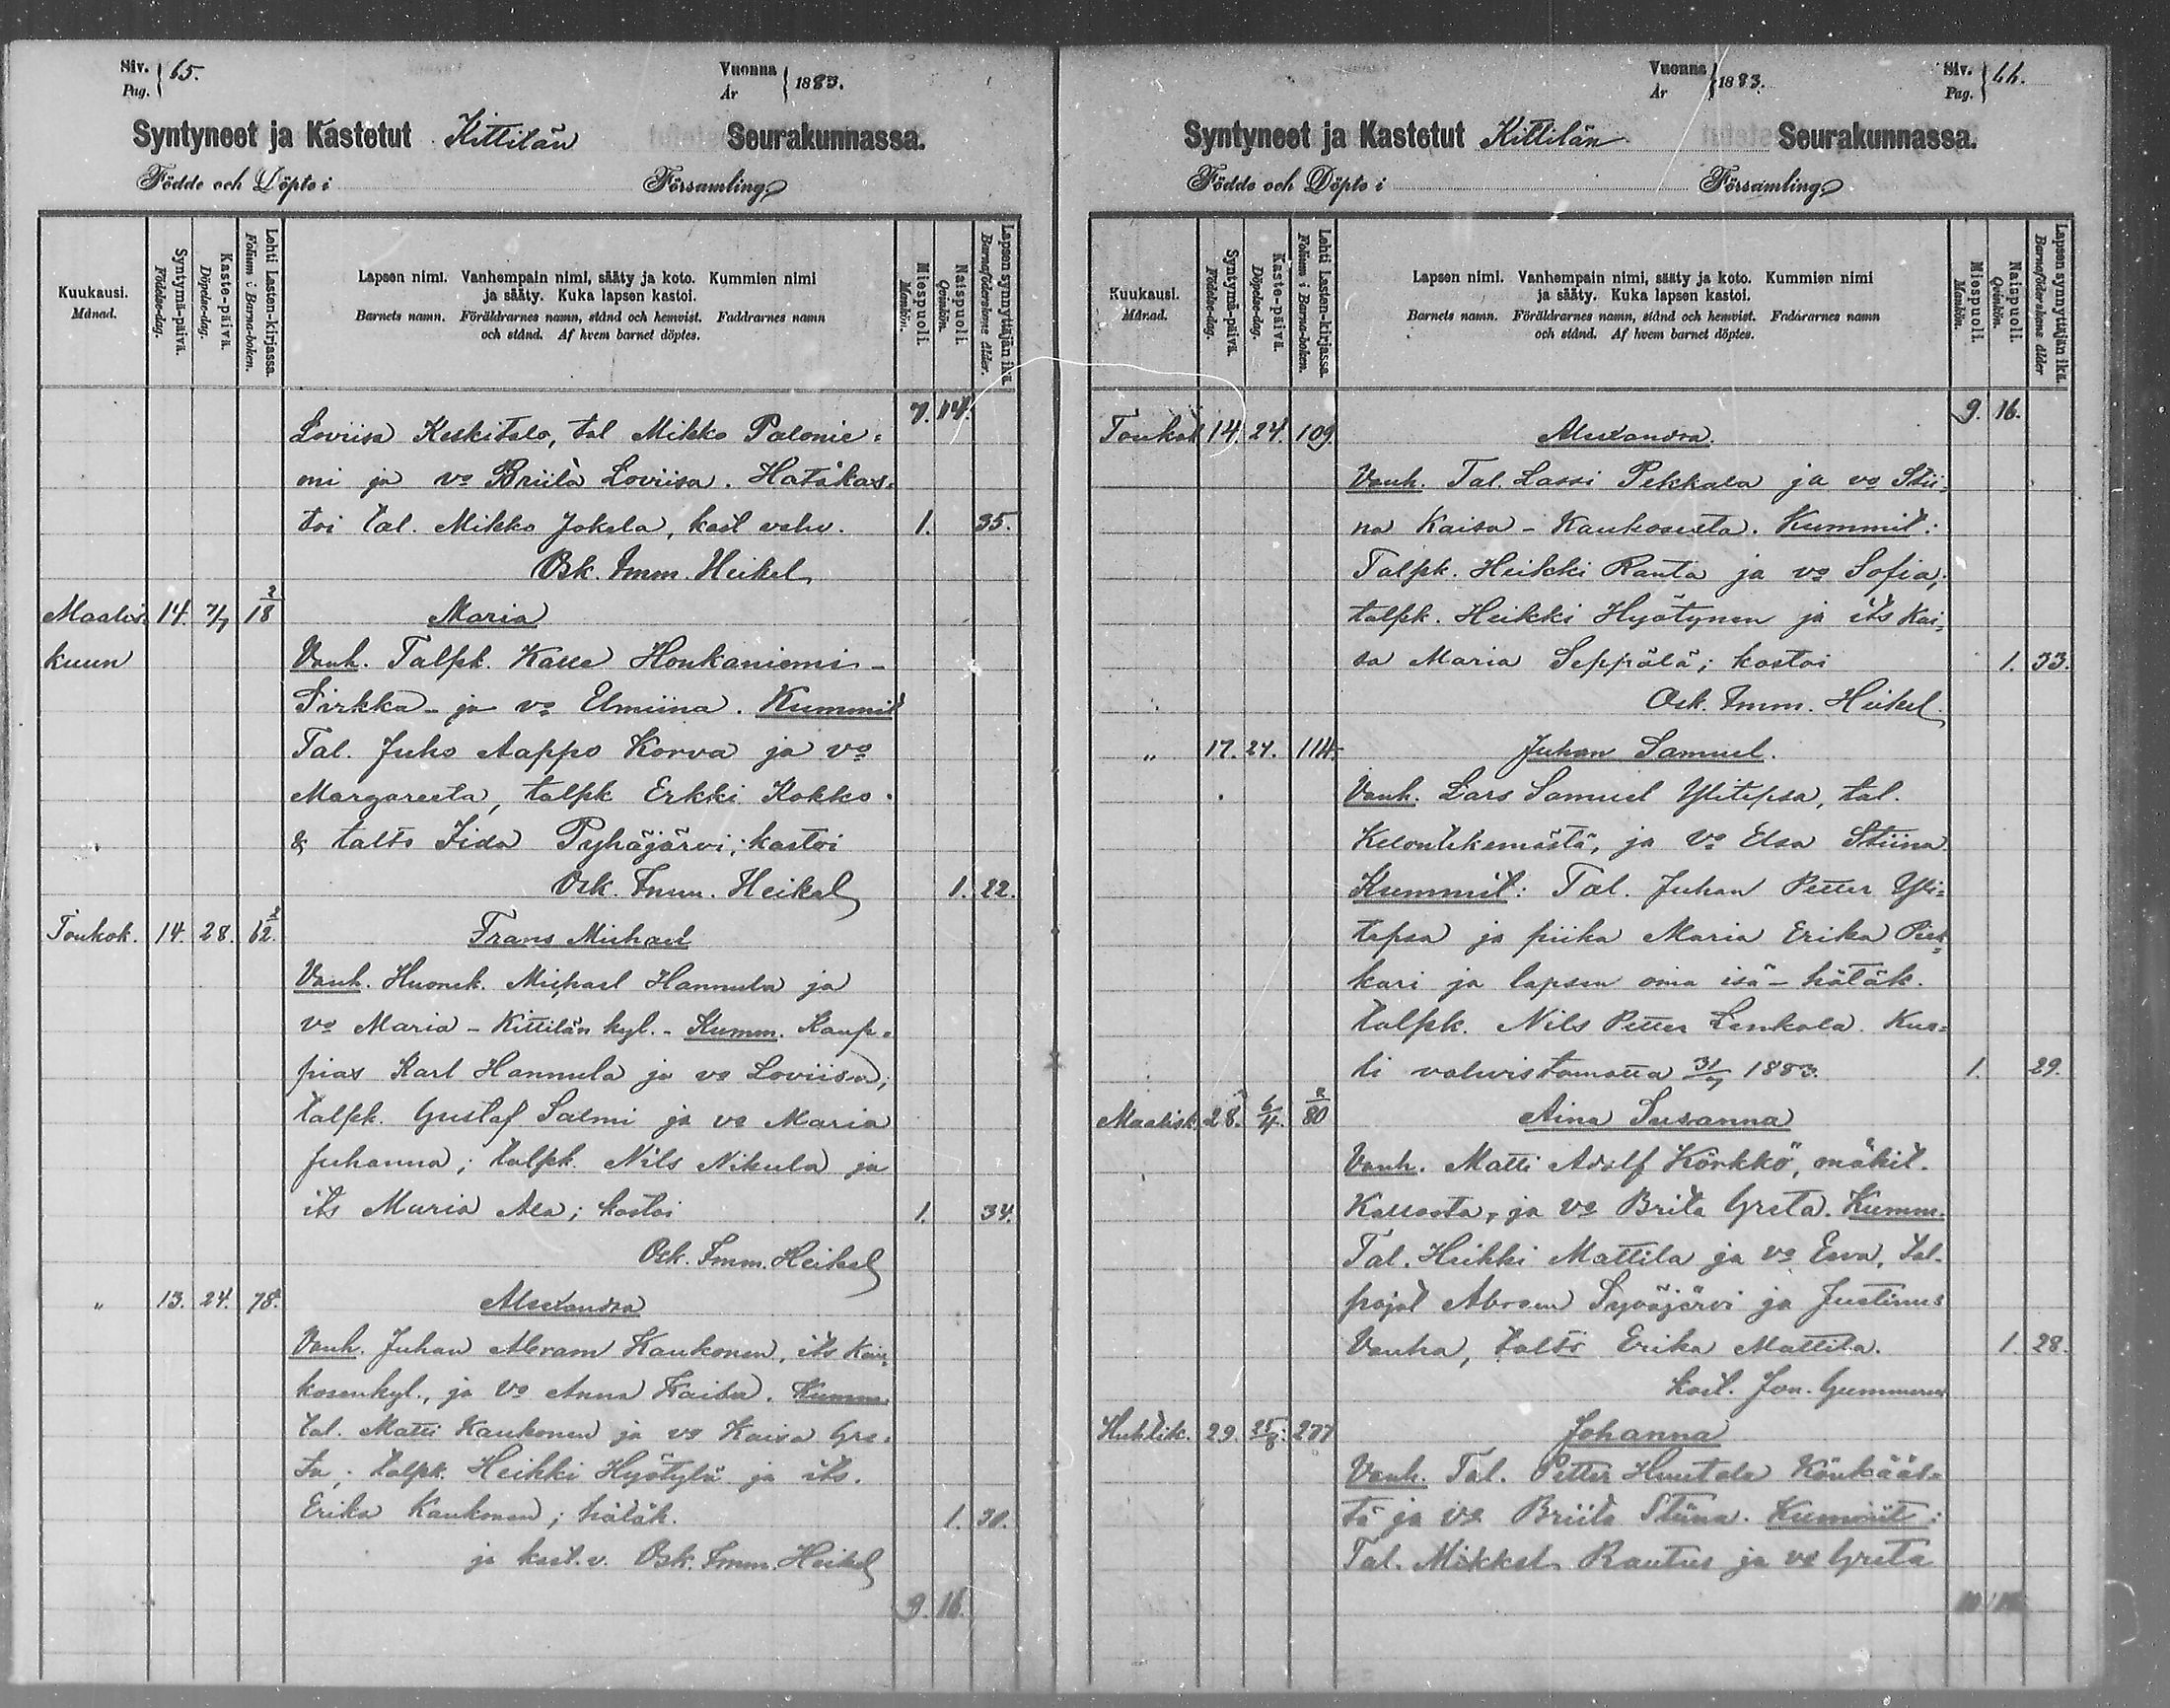 Siv. 65.
Pag.
Vuonna 1883.
År
Syntyneet ja Kastetut Kittilän Seurakunnassa.
Födde och Döpte i Församling
Kuukausi.
Månad.
Syntymä-päivä.
Födelse-dag.
Kaste-päivä.
Döpelse-dag.
Lehti Lasten-kirjassa.
Folium i Barna-boken.
Lapsen nimi. Vanhempain nimi, sääty ja koto. Kummien nimi
ja sääty. Kuka lapsen kastoi.
Barnets namn. Föräldrarnes namn, stånd och hemvist. Faddrarnes namn
och stånd. Af hvem barnet döptes.
Miespuoli.
Mankön.
Naispuoli.
Qvinkön.
Lapsen synnyttäjän ikä.
Barnaföderskans ålder.
7. 14.
Loviisa Keskitalo, tal Mikko Palonie-
mi ja vo Briita Loviisa. Hätäkas-
toi tal. Mikko Jokela, kast vahv. 1. 35.
Osk. Imm. Heikel
Maalis- 14. 7/7 2/18 Maria
kuun Vanh. Talpk. Kalle Honkaniemi -
Sirkka - ja vo Elmiina. Kummit
Tal. Juho Aappo Korva ja vo
Margareeta, talpk Erkki Kokko
& talts Iida Pyhäjärvi; kastoi
Osk. Imm. Heikel 1. 22.
Toukok. 14. 28. 2/62. Frans Michael
Vanh. Huonek. Michael Hannula ja
vo Maria - Kittilän kyl. - Kumm. Kaup-
pias Karl Hannula ja vo Loviisa;
talpk. Gustaf Salmi ja vo Maria
Juhanna; talpk. Nils Nikula ja
its Maria Ala; kastoi 1. 34.
Osk. Imm. Heikel
" 13. 24. 78. Alexandra
Vanh. Juhan Abram Kaukonen, its Kau-
kosenkyl., ja vo Anna Kaisa. Kumm.
tal. Matti Kaukonen ja vo Kaisa Gre-
ta; talpk. Heikki Hyötylä ja its.
Erika Kaukonen; hätäk. 1. 30.
ja kast. v. Osk. Imm. Heikel
9. 16.
Vuonna 1883.
År
Siv. 66.
Pag.
Syntyneet ja Kastetut Kittilän Seurakunnassa.
Födde och Döpte i Församling
Kuukausi.
Månad.
Syntymä-päivä.
Födelse-dag.
Kaste-päivä.
Döpelse-dag.
Lehti Lasten-kirjassa.
Folium i Barna-boken.
Lapsen nimi. Vanhempain nimi, sääty ja koto. Kummien nimi
ja sääty. Kuka lapsen kastoi.
Barnets namn. Föräldrarnes namn, stånd och hemvist. Faddrarnes namn
och stånd. Af hvem barnet döptes.
Miespuoli.
Mankön.
Naispuoli.
Qvinkön.
Lapsen synnyttäjän ikä.
Barnaföderskans ålder
9. 16.
Toukok 14. 24. 109. Alexandra.
Vanh. Tal. Lassi Pekkala ja vo Stii-
na Kaisa - Kaukosesta. Kummit:
Talpk. Heikki Ranta ja vo Sofia;
talpk. Heikki Hyötynen ja its Kai-
sa Maria Seppälä; kastoi 1. 33.
Osk. Imm. Heikel
" 17. 24. 114. Juhan Samuel.
Vanh. Lars Samuel Ylitepsa, tal.
Kelontekemästä, ja vo Elsa Stiina
Kummit: Tal. Juhan Petter Yli-
tepsa ja piika Maria Erika
kari ja lapsen oma isä - hätäk.
talpk. Nils Petter Lenkola.
ti vahvistamatta 31/7 1883. 1. 29.
Maalisk. 28. 6/4. 2/80 Aina Susanna
Vanh. Matti Adolf Körkkö, mökit.
Kallosta, ja vo Brita Greta. Kumm.
Tal. Heikki Mattila ja vo Eeva, tal.
pojat Abram Syväjärvi ja Justinus
Vanha, talts Erika Mattila. 1. 28.
kast. Jon. Gummerus
Huhtik. 29. 25/8. 277 Johanna
Vanh. Tal. Petter Huutela Könkääs-
tä ja vo Briita Stiina. Kummit:
Tal. Mikkel Rautus ja vo Greta